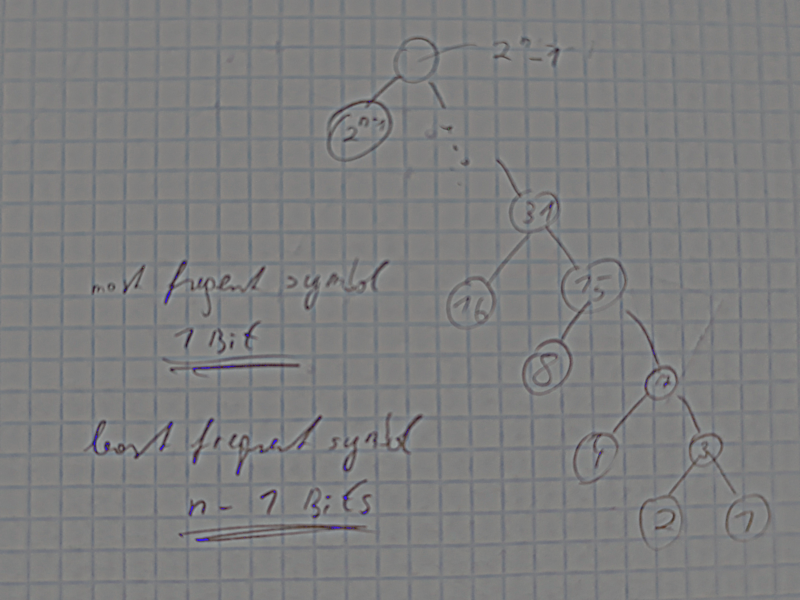 2^n - 1
2^n-1
31
16
15
8
7
4
3
2
1
most freqent symbol
1 Bit
least frequent symbol
n - 1 Bits